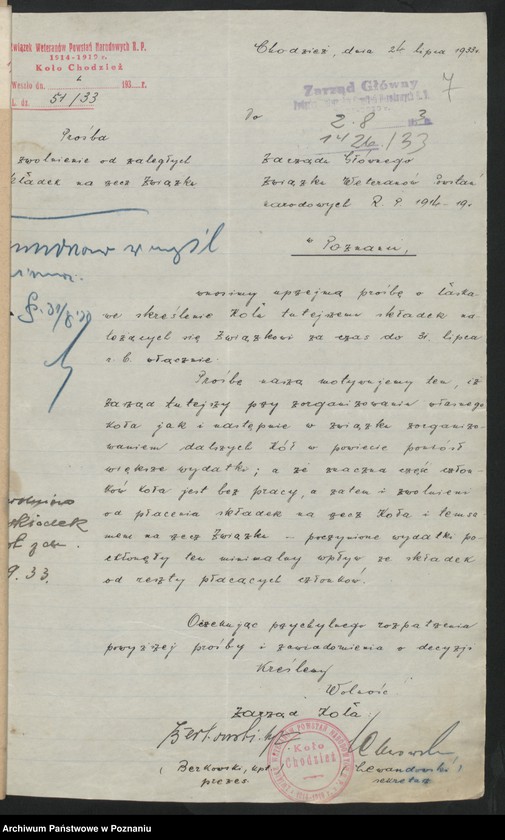 Związek Weteranów Powstań Narodowych R. P.
1914-1919 r.
Koło Chodzież
Weszło dn. 193 r.
L. dz. 51/33
Chodzież, dnia 26 lipca 1933 r.
Zarząd Główny
7
2. 8. 3
1426/33
Prośba
zwolnienie od zaległych
składek na rzecz Związku
Do
Zarządu Głównego
Związku Weteranów Powstań
Narodowych R. P. 1914-19.
w Poznaniu,
w myśl
wnosimy uprzejmą prośbę o łaska-
we skreślenie Kołu tutejszemu składek na-
leżących się Związkowi za czas do 31. lipca
r. b. włącznie.
Prośbę naszą motywujemy tem, iż
zarząd tutejszy przy zorganizowaniu własnego
Koła jak i następnie w związku zorganizo-
waniem dalszych Kół w powiecie poniósł
większe wydatki; a że znaczna część człon-
ków Koła jest bez pracy, a zatem i zwolnieni
od płacenia składek na rzecz Koła i temsa-
mem na rzecz Związku – poczynione wydatki po-
chłonęły ten minimalny wpływ ze składek
od reszty płacących członków.
składek
9. 33.
Oczekując przychylnego rozpatrzenia
powyższej prośby i zawiadomienia o decyzji
Kreślemy
Wolność
Zarząd Koła.
Berkowski
Koło
Chodzież
(Berkowski, kpt.)
prezes
(Lewandowski)
sekretarz
Archiwum Państwowe w Poznaniu